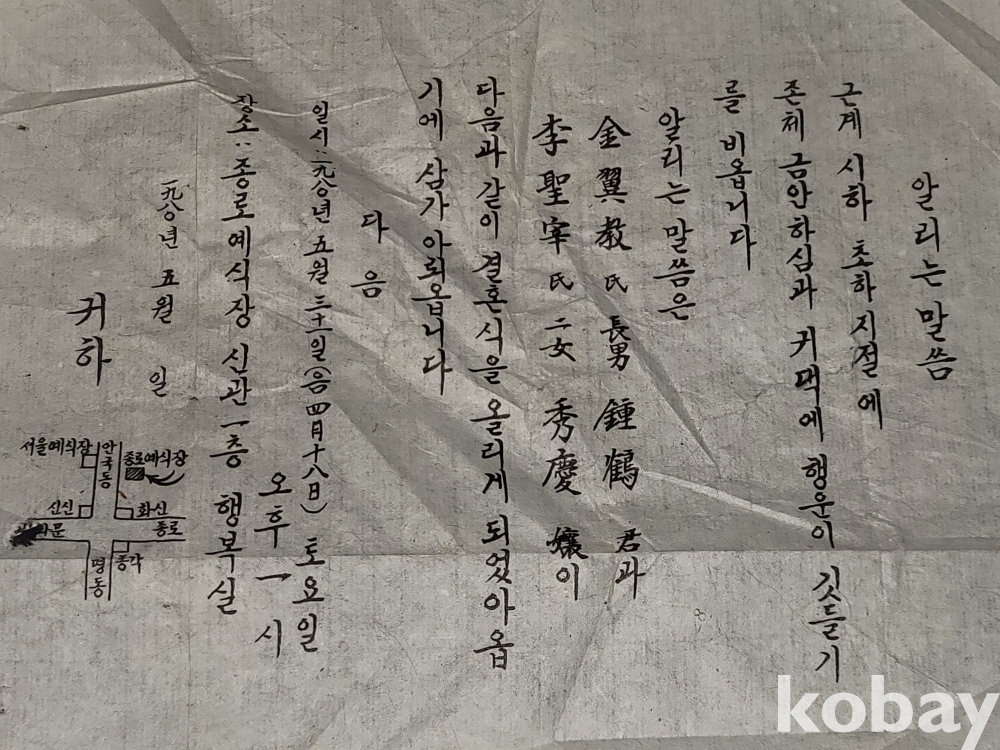 알리는 말씀
근계 시하 초하지절에
존체 금안하심과 귀댁에 행운이 깃들기
를 비옵니다
알리는 말씀은
金翼敎氏 長男 鍾鶴 君과
李聖宰氏 二女 秀慶 孃이
다음과 같이 결혼식을 올리게 되었아옵
기에 삼가 아뢰옵니다
다음
일시 : 一九八〇년 五월 三十一일(음 四月十八日) 토요일
오후 一시
장소 : 종로예식장 신관 一층 행복실
一九八〇년 五월 일
귀하
서울예식장
안국동
종로예식장
신신
화신
종로
명동
종각
kobay